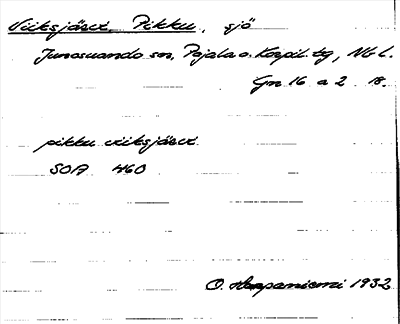 Viiksjärvi, Pikku, sjö
Junosuando sn, Pajala o. Korpil. tg, Nb l.
Gn 16 a 2 18.
pikku viiksjärvi
SOA 460
O. Haapaniemi 1932